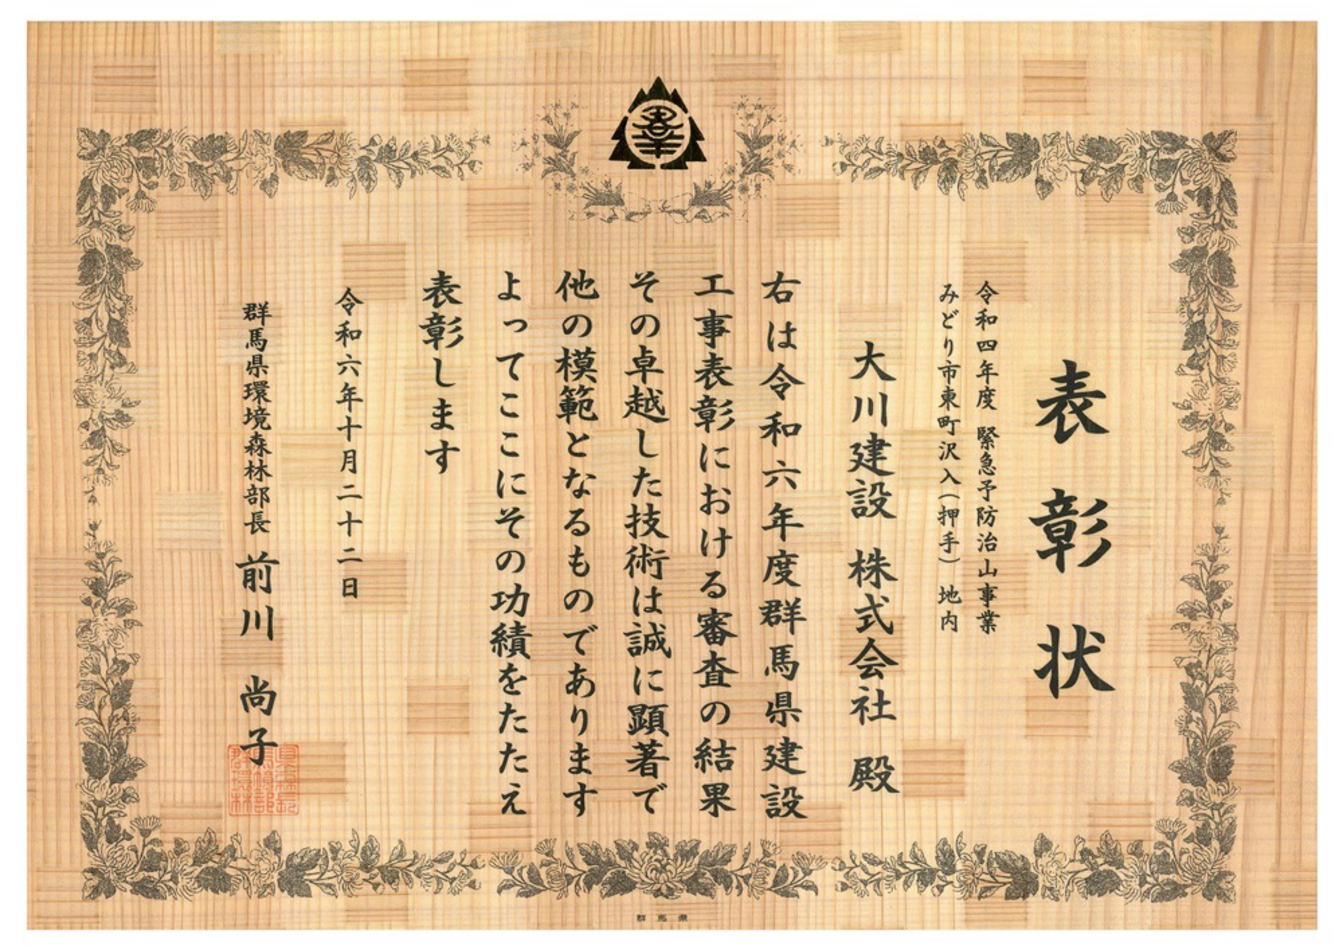 表彰状
令和四年度 緊急予防治山事業
みどり市東町沢入(押手) 地内
大川建設 株式会社 殿
右は令和六年度群馬県建設
工事表彰における審査の結果
その卓越した技術は誠に顕著で
他の模範となるものであります
よってここにその功績をたたえ
表彰します
令和六年十月二十二日
群馬県環境森林部長 前川 尚子
群馬県